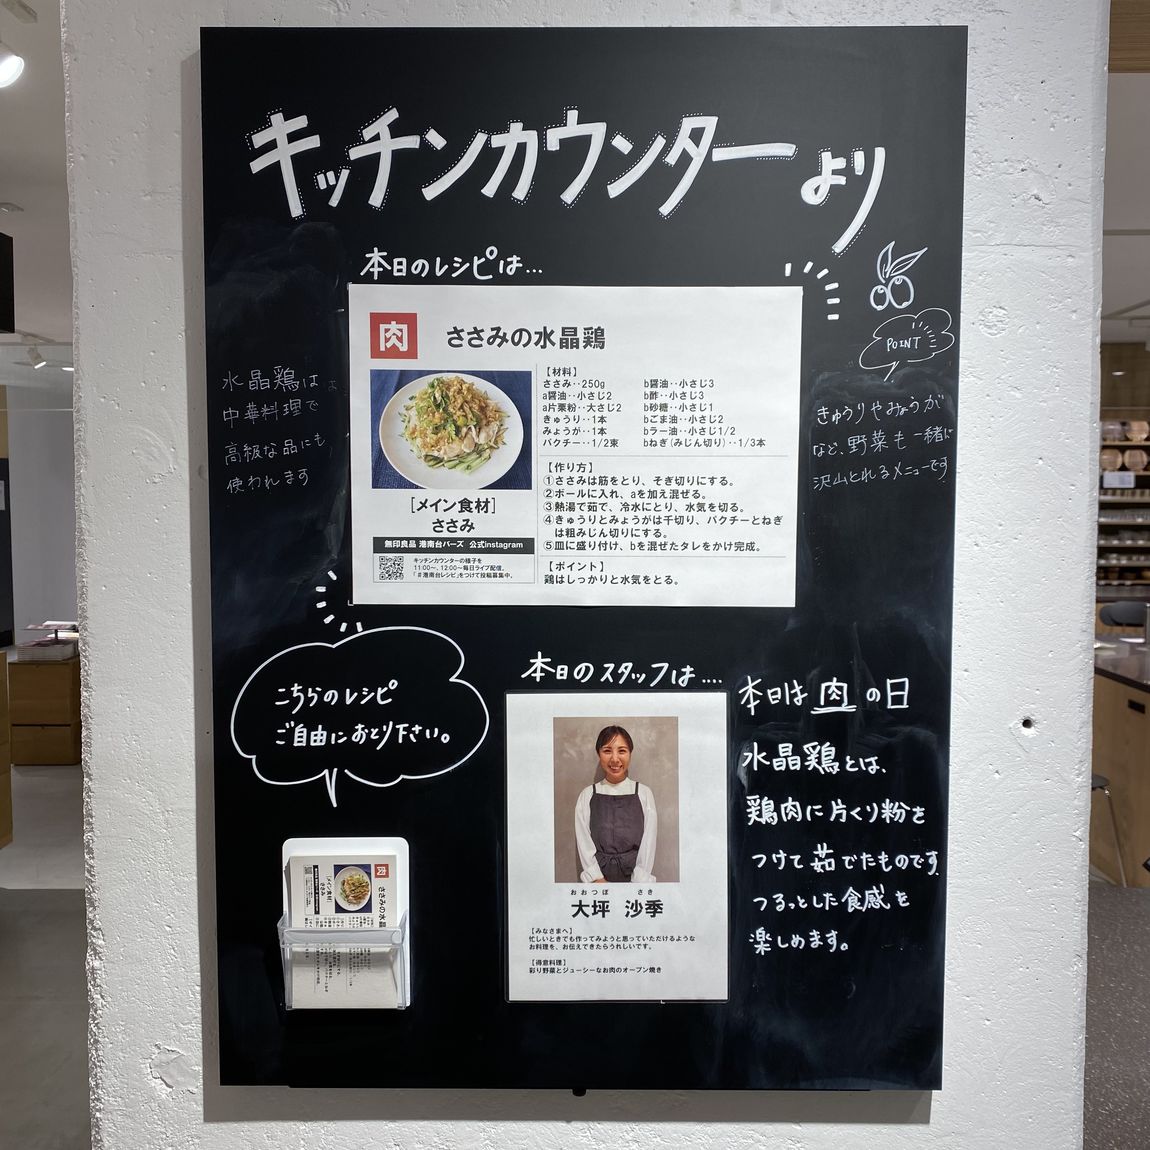 キッチンカウンターより
本日のレシピは…
肉 ささみの水晶鶏
【材料】
ささみ‥250g
a醤油‥小さじ2
a片栗粉‥大さじ2
きゅうり‥1本
みょうが‥1本
パクチー‥1/2束
b醤油‥小さじ3
b酢‥小さじ3
b砂糖‥小さじ1
bごま油‥小さじ2
bラー油‥小さじ1/2
bねぎ(みじん切り)‥1/3本
【作り方】
①ささみは筋をとり、そぎ切りにする。
②ボールに入れ、aを加え混ぜる。
③熱湯で茹で、冷水にとり、水気を切る。
④きゅうりとみょうがは千切り、パクチーとねぎ
は粗みじん切りにする。
⑤皿に盛り付け、bを混ぜたタレをかけ完成。
【ポイント】
鶏はしっかりと水気をとる。
[メイン食材]
ささみ
無印良品 港南台バーズ 公式instagram
キッチンカウンターの様子を
11:00〜、12:00〜毎日ライブ配信。
「#港南台レシピ」をつけて投稿募集中。
水晶鶏は
中華料理で
高級な品にも
使われます
POINT
きゅうりやみょうが
など、野菜も一緒に
沢山とれるメニューです
こちらのレシピ
ご自由におとり下さい。
肉
ささみの水晶
[メイン食材]
ささみ
本日のスタッフは‥‥
おおつぼ さき
大坪 沙季
【みなさまへ】
忙しいときでも作ってみようと思っていただけるような
お料理を、お伝えできたらうれしいです。
【得意料理】
彩り野菜とジューシーなお肉のオーブン焼き
本日は肉の日
水晶鶏とは、
鶏肉に片くり粉を
つけて茹でたものです。
つるっとした食感を
楽しめます。